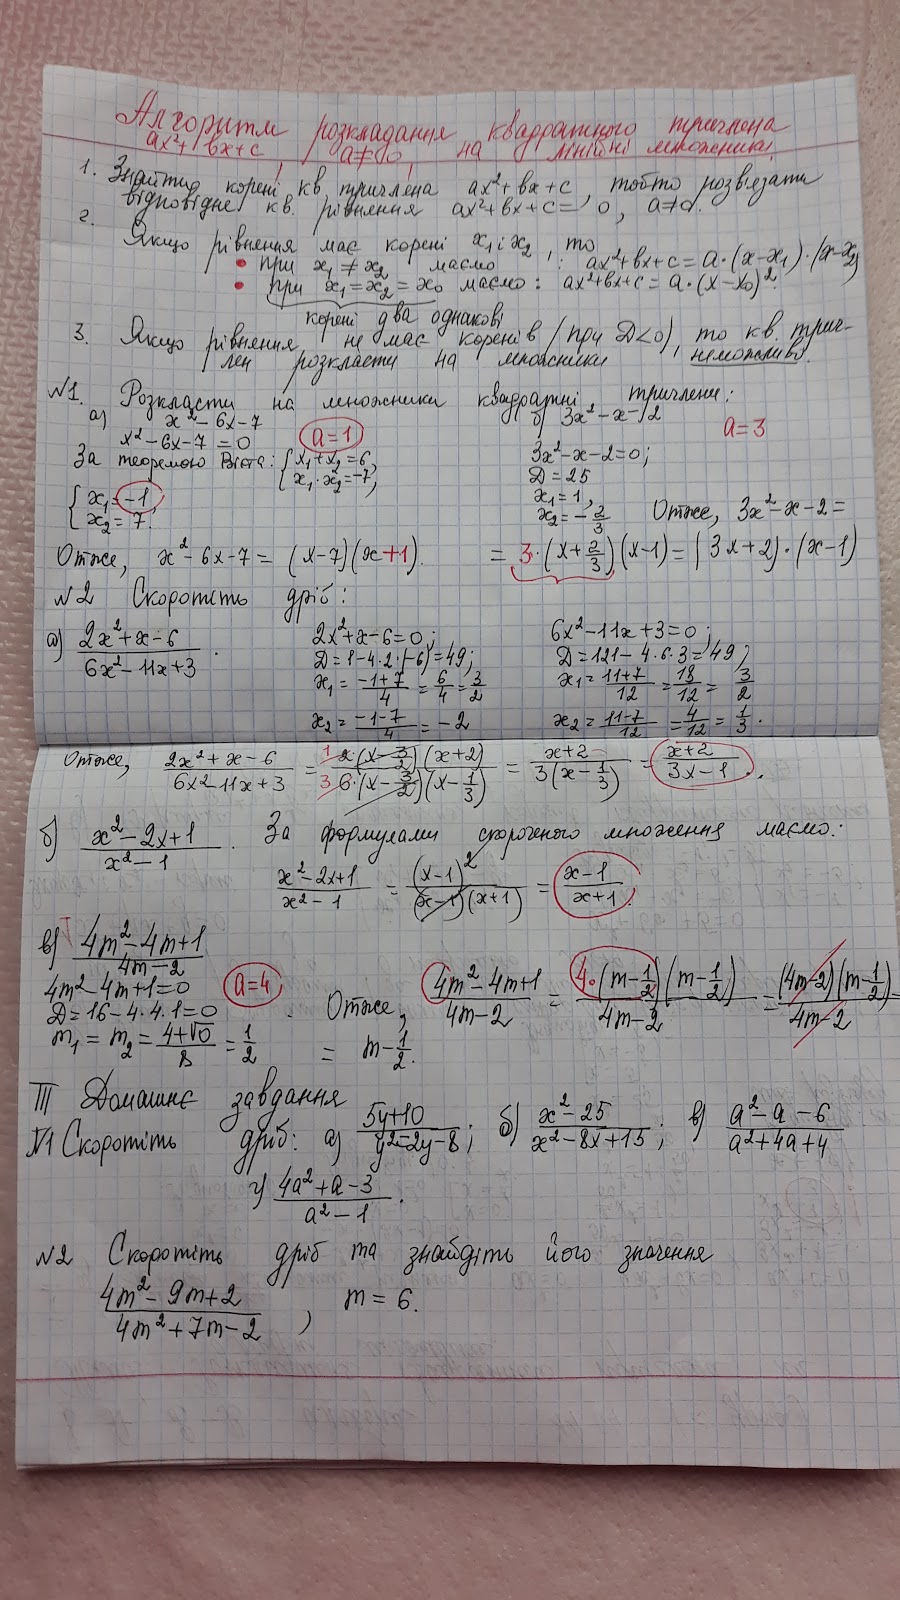 Алгоритм розкладання квадратного тричлена
ax²+bx+c, a≠0, на лінійні множники.
1. Знайти корені кв. тричлена ax²+bx+c, тобто розв'язати
відповідне кв. рівняння ax²+bx+c=0, a≠0.
2.
Якщо рівняння має корені x₁ і x₂, то
• при x₁≠x₂ маємо : ax²+bx+c=a·(x-x₁)·(x-x₂)
• при x₁=x₂=x₀ маємо: ax²+bx+c=a·(x-x₀)².
корені два однакові
3. Якщо рівняння не має коренів (при D<0), то кв. трич-
лен розкласти на множники неможливо.
№1. Розкласти на множники квадратні тричлени:
а) x²-6x-7
x²-6x-7=0 a=1
За теоремою Вієта: {x₁+x₂=6,
x₁·x₂=-7,
{x₁=-1
x₂=7.
Отже, x²-6x-7=(x-7)(x+1).
б) 3x²-x-2
a=3
3x²-x-2=0;
D=25
x₁=1,
x₂=-2/3 Отже, 3x²-x-2=
=3·(x+2/3)(x-1)=(3x+2)·(x-1)
№2 Скоротіть дріб:
а) (2x²+x-6)/(6x²-11x+3).
2x²+x-6=0;
D=1-4·2·(-6)=49;
x₁=(-1+7)/4=6/4=3/2
x₂=(-1-7)/4=-2
6x²-11x+3=0;
D=121-4·6·3=49;
x₁=(11+7)/12=18/12=3/2
x₂=(11-7)/12=4/12=1/3.
Отже, (2x²+x-6)/(6x²-11x+3) = 1 2·(x-3/2)(x+2)/3 6·(x-3/2)(x-1/3) = (x+2)/3(x-1/3) = (x+2)/(3x-1).
б) (x²-2x+1)/(x²-1). За формулами скороченого множення маємо:
(x²-2x+1)/(x²-1) = (x-1)²/(x-1)(x+1) = (x-1)/(x+1).
в) (4m²-4m+1)/(4m-2)
4m²-4m+1=0 a=4
D=16-4·4·1=0
m₁=m₂=(4+√0)/8=1/2
Отже, (4m²-4m+1)/(4m-2) = 4·(m-1/2)(m-1/2)/(4m-2) = (4m-2)(m-1/2)/(4m-2) =
= m-1/2.
III Домашнє завдання
№1 Скоротіть дріб: а) (5y+10)/(y²-2y-8); б) (x²-25)/(x²-8x+15); в) (a²-a-6)/(a²+4a+4)
г) (4a²+a-3)/(a²-1).
№2 Скоротіть дріб та знайдіть його значення
(4m²-9m+2)/(4m²+7m-2), m=6.